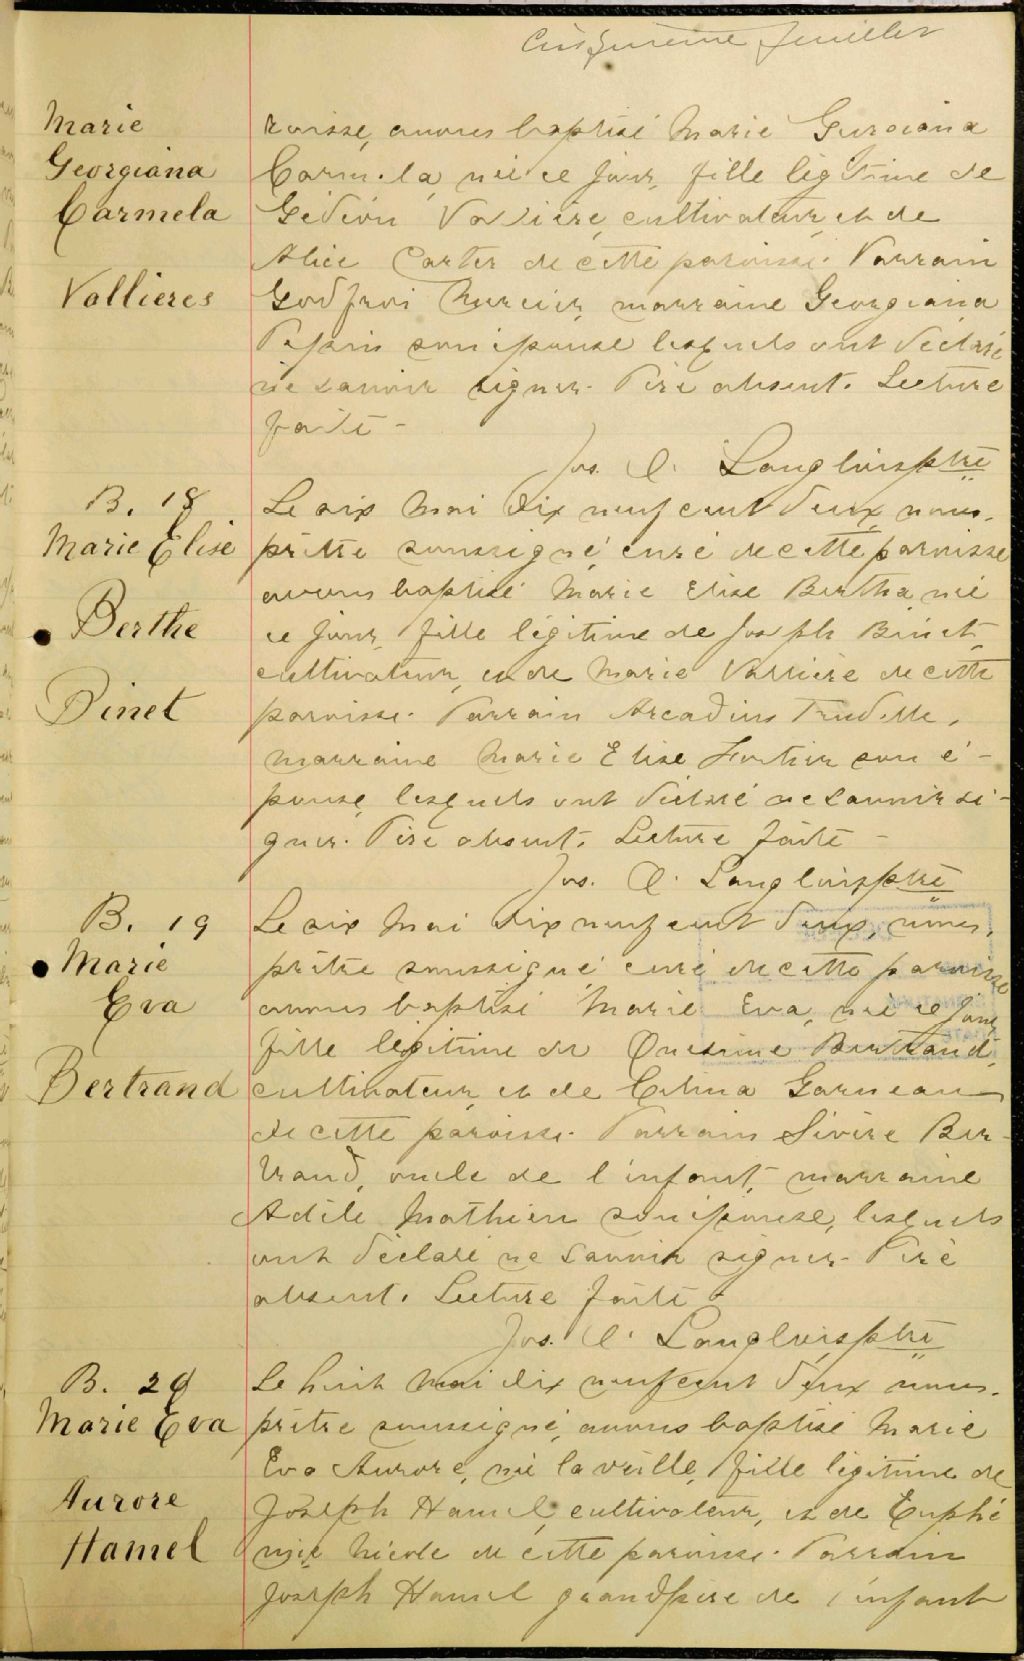 Cinquième feuillet
Marie
Georgiana
Carmela
Vallieres
roisse, avons baptisé Marie Gurgiana
Carmela, née ce jour, fille légitime de
Gédéon Vallière, cultivateur, et de
Alice Carter de cette paroisse. Parrain
Godfroi Mercier, marraine Georgiana
Pepin son épouse lesquels ont déclaré
ne savoir signer. Père absent. Lecture
faite -
Jos. O. Langlois ptre
B. 18
Marie Elise
Berthe
Binet
Le six Mai dix neuf cent deux, nous,
prêtre soussigné curé de cette paroisse
avons baptisé Marie Elise Bertha, née
ce jour, fille légitime de Joseph Binet,
cultivateur, et de Marie Vallière de cette
paroisse. Parrain Arcadius Trudelle,
marraine Marie Elise Fortier son é-
pouse, lesquels ont déclaré ne savoir si-
gner. Père absent. Lecture faite -
Jos. O. Langlois ptre
B. 19
Marie
Eva
Bertrand
Le six Mai dix neuf cent deux, nous,
prêtre soussigné curé de cette paroisse
avons baptisé Marie Eva, née ce jour,
fille légitime de Onésime Bertrand,
cultivateur, et de Celina Garneau
de cette paroisse. Parrain Sivère Ber-
trand, oncle de l'enfant, marraine
Adèle Mathieu son épouse, lesquels
ont déclaré ne savoir signer. Père
absent. Lecture faite -
Jos. O. Langlois ptre
B. 20
Marie Eva
Aurore
Hamel
Le huit Mai dix neuf cent deux nous,
prêtre soussigné, avons baptisé Marie
Eva Aurore, née la veille, fille légitime de
Joseph Hamel, cultivateur, et de Euphé
mie Nicole de cette paroisse. Parrain
Joseph Hamel grandpère de l'enfant